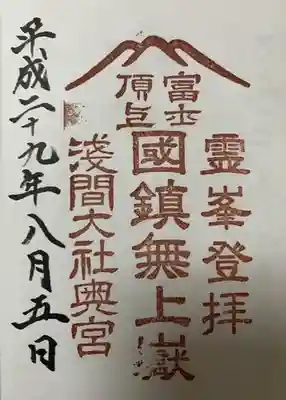 霊峯登拝
富士
頂上
國鎮無上嶽
淺間大社奥宮
平成二十九年八月五日